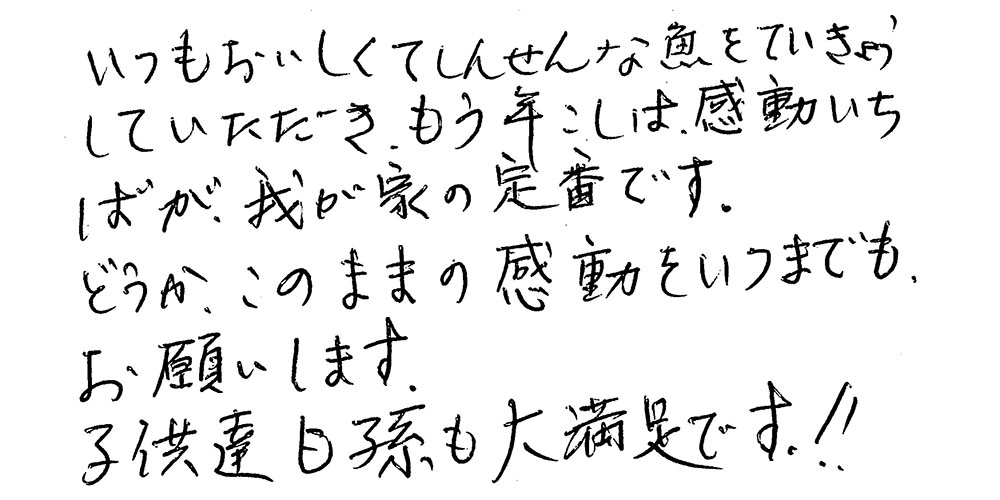 いつもおいしくてしんせんな魚をていきょう
していただき、もう年こしは、感動いち
ばが、我が家の定番です。
どうか、このままの感動をいつまでも、
お願いします。
子供達 孫も大満足です。!!